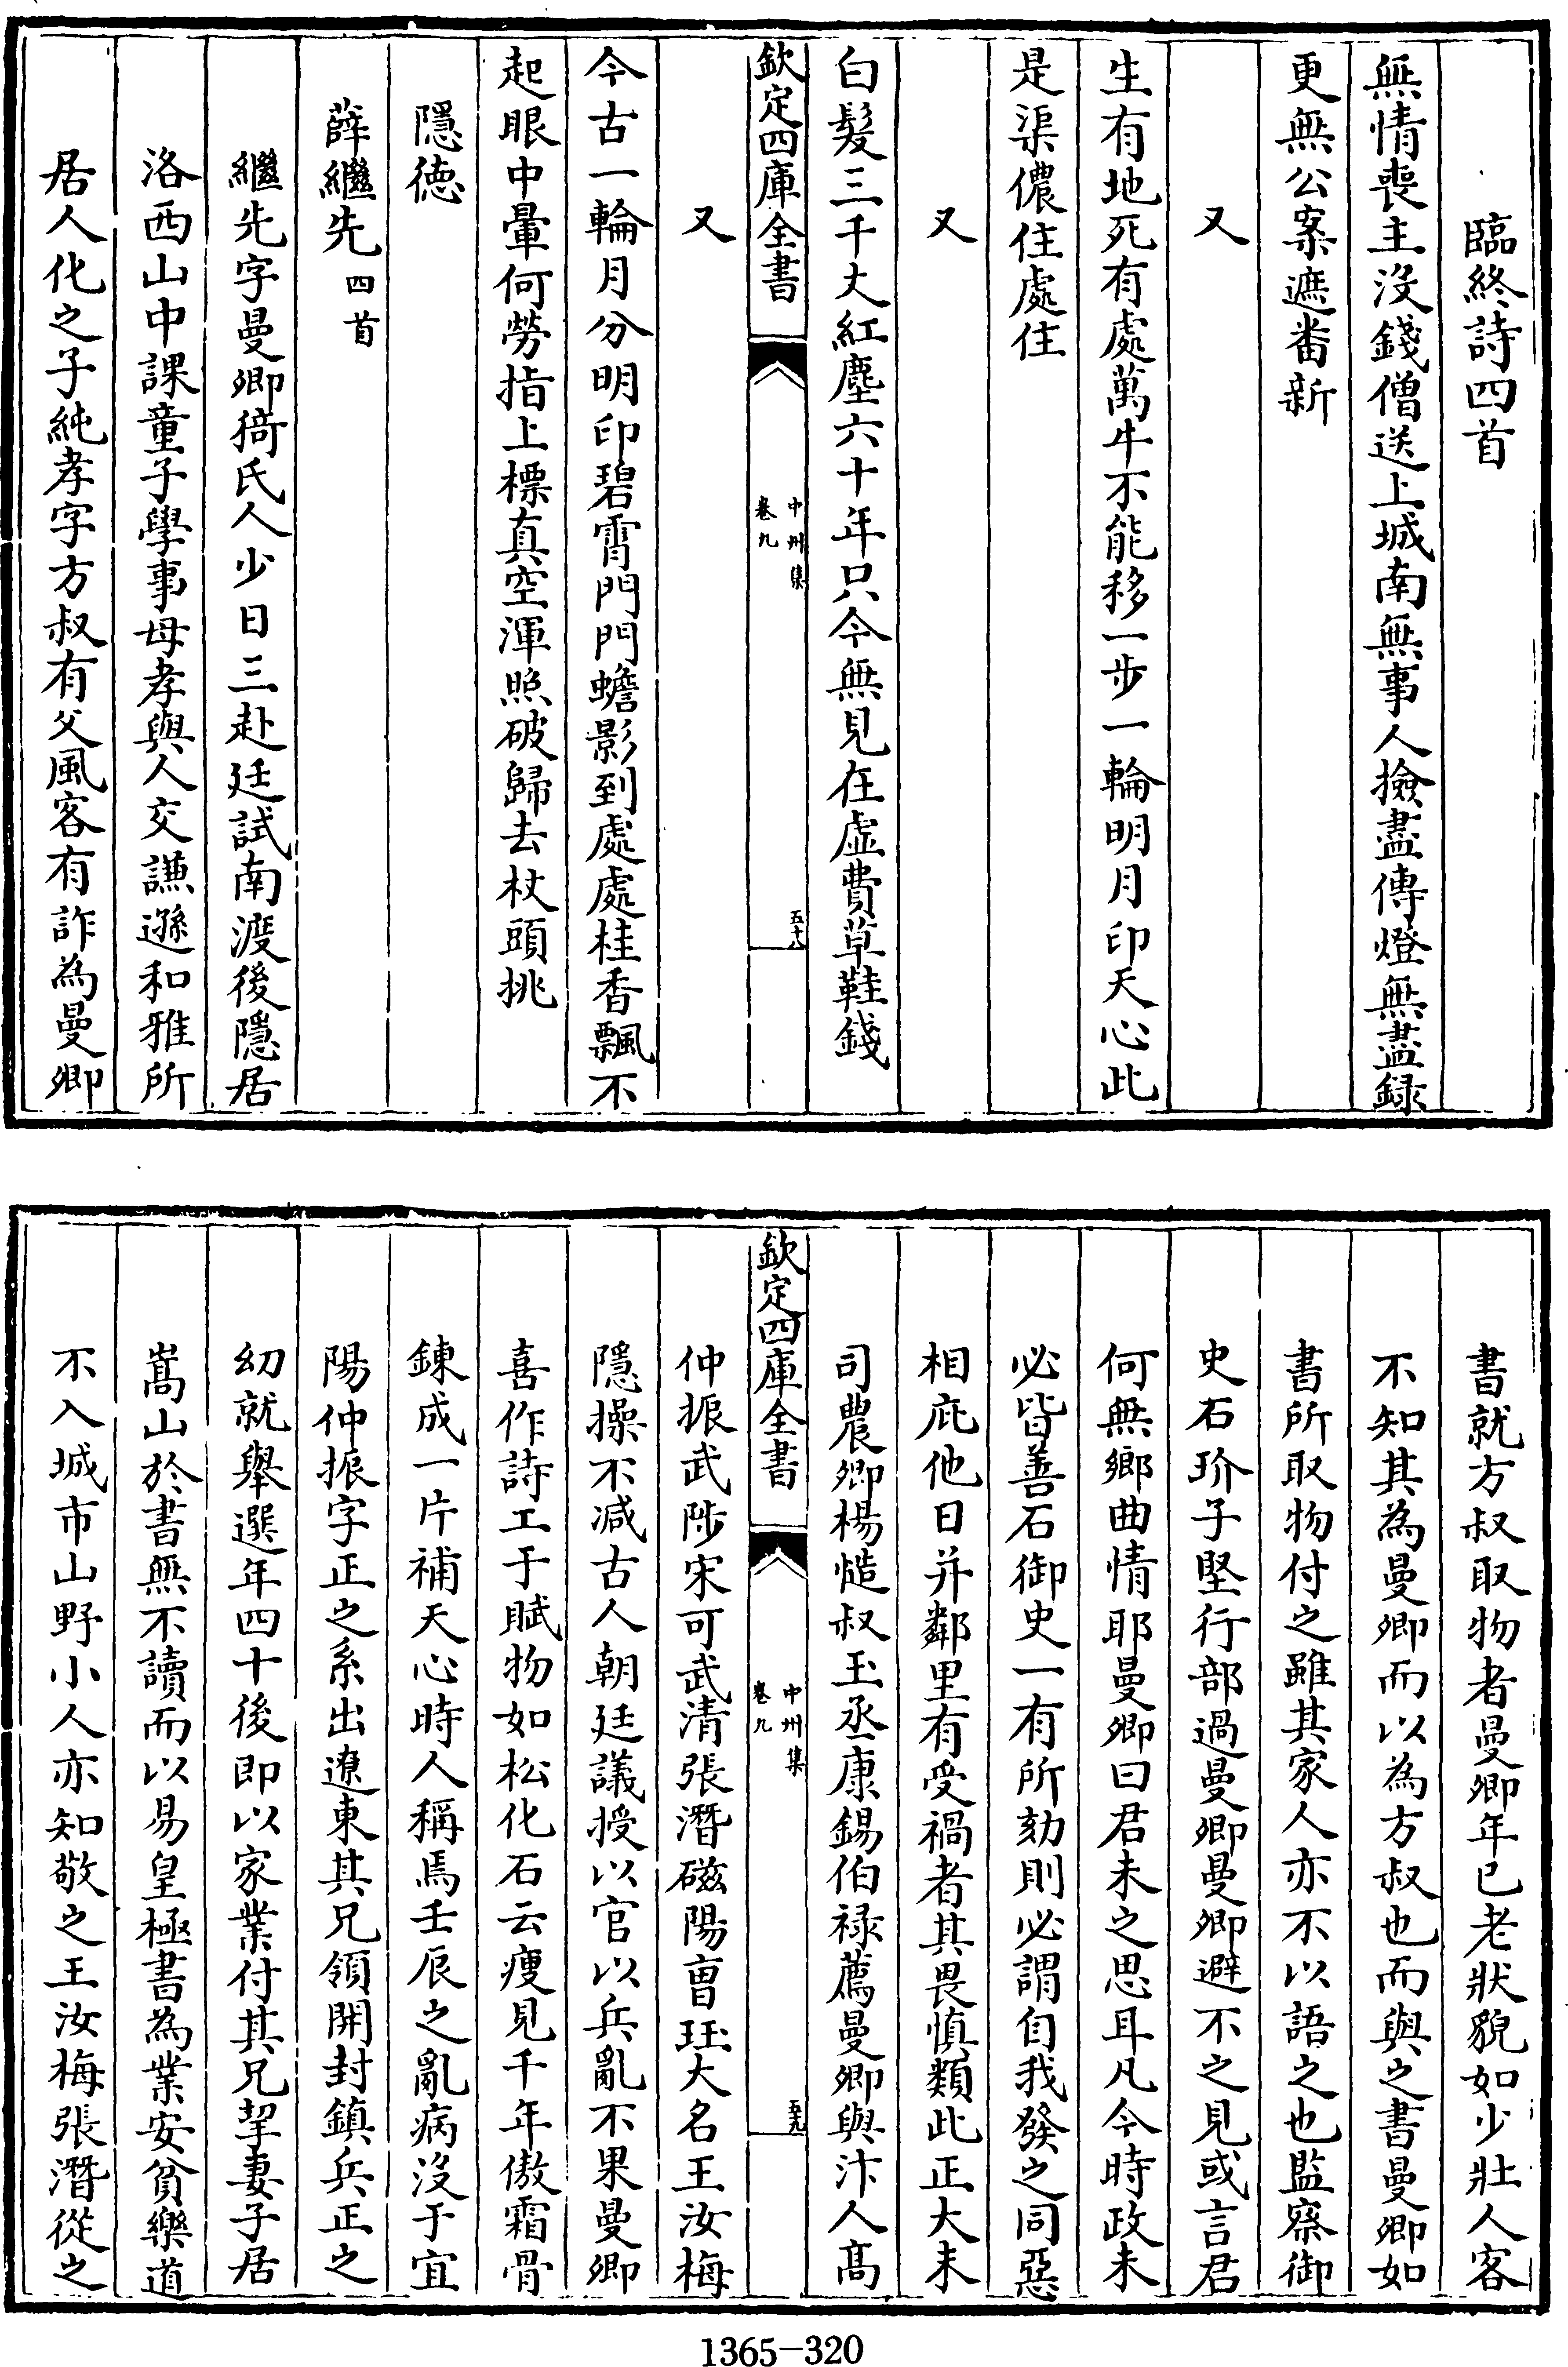 臨終詩四首
無情喪主沒錢僧送上城南無事人撿盡傳燈無盡録
更無公案遮番新
又
生有地死有處萬牛不能移一步一輪明月印天心此
是渠儂住處住
又
白髮三千丈紅塵六十年只今無見在虛費草鞋錢
欽定四庫全書
中州集
卷九
五十八
又
今古一輪月分明印碧霄門門蟾影到處處桂香飄不
起眼中暈何勞指上標真空渾照破歸去杖頭挑
隱德
薛繼先四首
繼先字曼卿猗氏人少日三赴廷試南渡後隱居
洛西山中課童子學事母孝與人交謙遜和雅所
居人化之子純孝字方叔有父風客有詐為曼卿
書就方叔取物者曼卿年已老狀貌如少壯人客
不知其為曼卿而以為方叔也而與之書曼卿如
書所取物付之雖其家人亦不以語之也監察御
史石玠子堅行部過曼卿曼卿避不之見或言君
何無鄉曲情耶曼卿曰君未之思耳凡今時政未
必皆善石御史一有所劾則必謂自我發之同惡
相庇他日并鄰里有受禍者其畏慎類此正大末
司農卿楊慥叔玉丞康錫伯禄薦曼卿與汴人高
欽定四庫全書
中州集
卷九
五十九
仲振武陟宋可武清張潛磁陽曺珏大名王汝梅
隱操不減古人朝廷議授以官以兵亂不果曼卿
喜作詩工于賦物如松化石云瘦見千年傲霜骨
鍊成一片補天心時人稱焉壬辰之亂病沒于宜
陽仲振字正之系出遼東其兄領開封鎮兵正之
幼就舉選年四十後即以家業付其兄挈妻子居
嵩山於書無不讀而以易皇極書為業安貧樂道
不入城市山野小人亦知敬之王汝梅張潛從之
1365-320